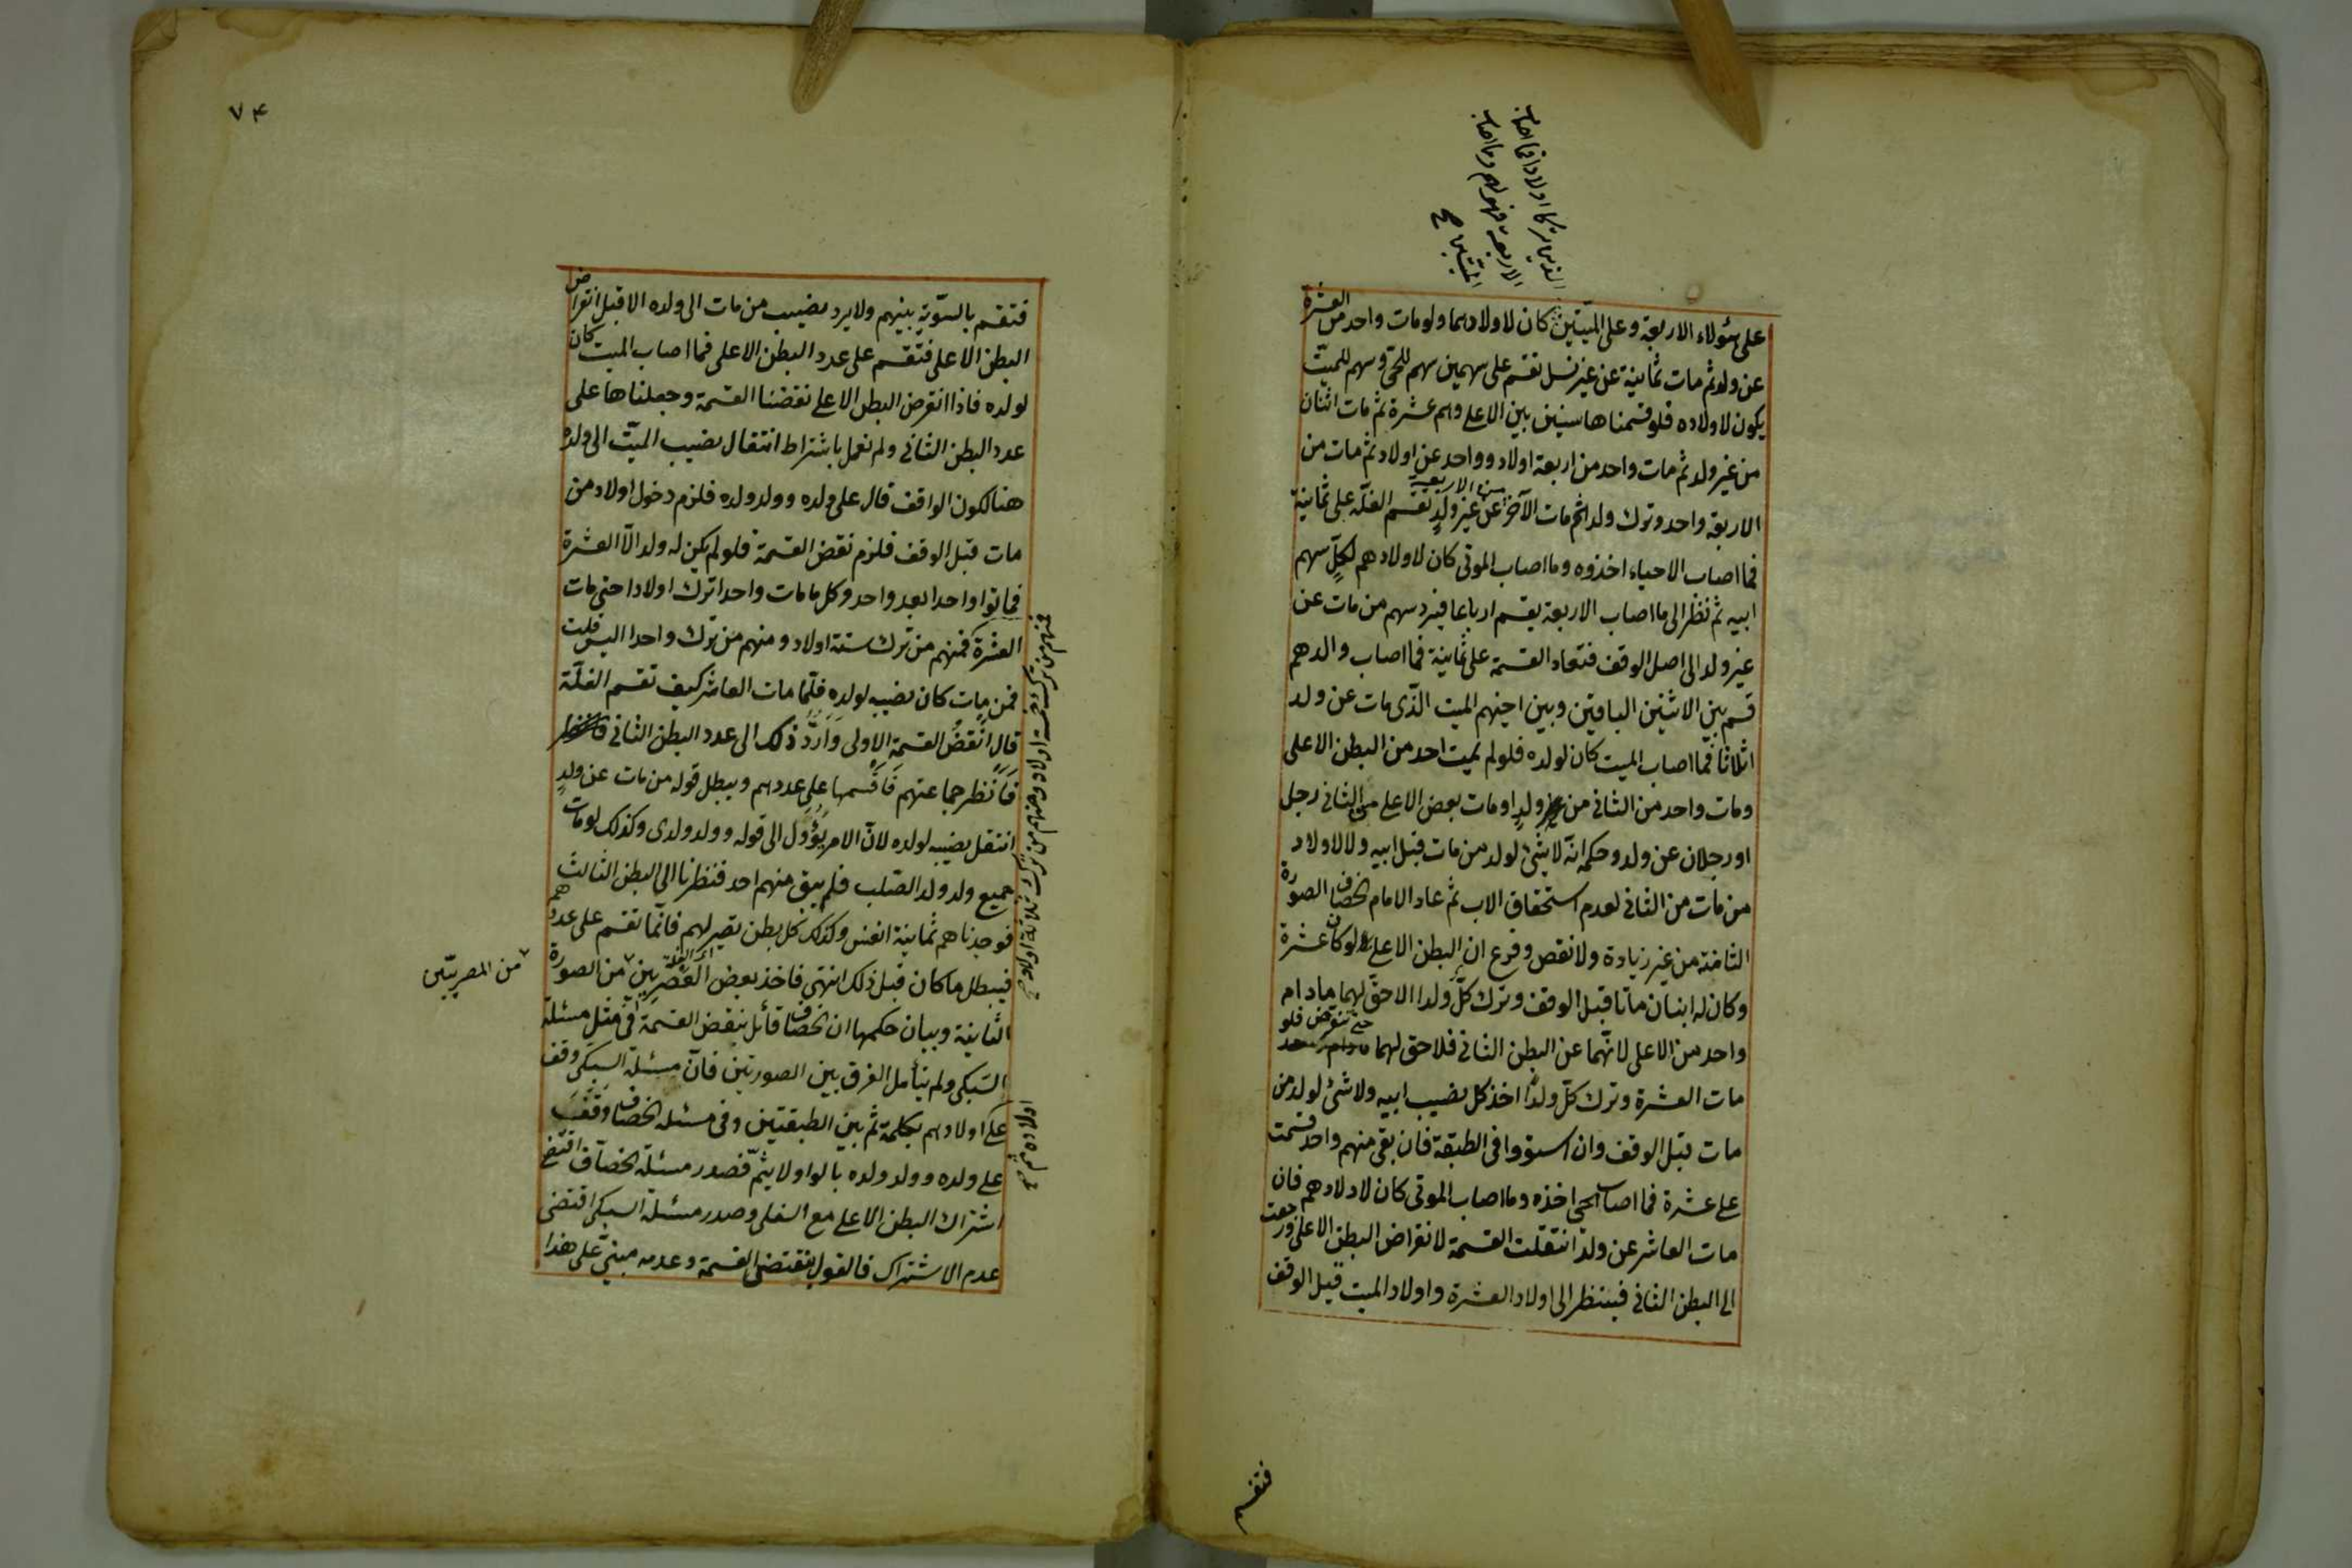 الذين تركا اولادا فما اصاب
الاربعة فهو لهم وما اصاب
الميتين صح
على هؤلاء الاربعة وعلى الميّتين كان لاولادهما ولو مات واحد من العشرة
عن ولد ثم مات ثمانية عن غير نسل تقسم على سهمين سهم للحي وسهم للميّت
يكون لاولاده فلو قسمناها سنين بين الاعلى وهم عشرة ثم مات اثنان
من غير ولد ثم مات واحد من اربعة اولاد وواحد عن اولاد ثم مات من
الاربعة واحد وترك ولدا ثم مات الآخر من الاربعة عن غير ولدٍ تقسم الغلّة على ثمانية
فما اصاب الاحياء اخذوه وما اصاب الموتى كان لاولادهم لكلٍّ سهم
ابيه ثم ننظر الى ما اصاب الاربعة يقسم ارباعا فيرد سهم من مات عن
غير ولد الى اصل الوقف فتعاد القسمة على ثمانية فما اصاب والدهم
قسم بين الاثنين الباقيين وبين اخيهم الميت الذى مات عن ولد
اثلاثا فما اصاب الميت كان لولده فلو لم يمت احد من البطن الاعلى
ومات واحد من الثانى من غير ولدٍ او مات بعض الاعلى من الثانى رجل
او رجلان عن ولد وحكمه انّه لا شئ لولد من مات قبل ابيه ولا لاولاد
من مات من الثانى لعدم استحقاق الاب ثم عاد الامام الخصاف الصورة
الثامنة من غير زيادة ولا نقص وفرع ان البطن الاعلى لو كان عشرة
وكان له ابنان ماتا قبل الوقف وترك كلّ ولدا الا حقّ لهما مادام
واحد من الاعلى لانّهما عن البطن الثانى فلا حق لهما حتى تنقرض فلو
مات العشرة وترك كلّ ولدًا اخذ كل نصيب ابيه ولا شئ لولد من
مات قبل الوقف وان استووا فى الطبقة فان بقى منهم واحد قسمت
على عشرة فما اصاب الحي اخذه وما اصاب الموتى كان لاولادهم فان
مات العاشر عن ولد انتقلت القسمة لانقراض البطن الاعلى ورجعت
الى البطن الثانى فينظر الى اولاد العشرة واولاد الميت قبل الوقف
فتقسم
٧٤
فتقسم بالسّويّة بينهم ولا يرد نصيب من مات الى ولده الا قبل انقراض
البطن الاعلى فتقسم على عدد البطن الاعلى فما اصاب الميت كان
لولده فاذا انقرض البطن الاعلى نقضنا القسمة وجعلناها على
عدد البطن الثانى ولم نعمل باشتراط انتقال نصيب الميّت الى ولده
هنا لكون الواقف قال على ولده وولد ولده فلزم دخول اولاد من
مات قبل الوقف فلزم نقض القسمة فلو لم يكن له ولد الّا العشرة
فماتوا واحدا بعد واحد وكل ما مات واحد ترك اولادا حتى مات
العشرة فمنهم من ترك ستة اولاد ومنهم من ترك واحدا اليس قلت
فمن مات كان نصيبه لولده فلمّا مات العاشر كيف تقسم الغلّة
قال انقض القسمة الاولى وارد ذلك الى عدد البطن الثانى
فانظر جماعتهم فاقسمها على عددهم ويبطل قوله من مات عن ولدٍ
انتقل نصيبه لولده لانّ الامر يؤول الى قوله وولد ولدى وكذلك لو مات
جميع ولد ولد الصّلب فلم يبق منهم احد فنظرنا الى البطن الثالث
فوجدناهم ثمانية انفس وكذلك كل بطن تصير لهم فانّما تقسم على عددهم
فيبطل ما كان قبل ذلك انتهى فاخذ بعض العصريين من الصورة
الثانية وبيان حكمها ان الخصاف قائل بنقض القسمة فى مثل مسئلة
السّبكى ولم يتأمل الفرق بين الصورتين فانّ مسئلة السبكى وقف
على اولادهم بكلمة ثم بين الطبقتين وفى مسئلة الخصاف وقف
على ولده وولد ولده بالواو لا بثمّ فصدر مسئلة الخصاف اقتضى
اشتراك البطن الاعلى مع السفلى وصدر مسئلة السبكى اقتضى
عدم الاشتراك فالقول بنقض القسمة وعدمه مبنىّ على هذا
فمنهم من ترك خمسة اولاد ومنهم من ترك ثلاثة اولاد صح
من المصريّين
اولاده ثم صح